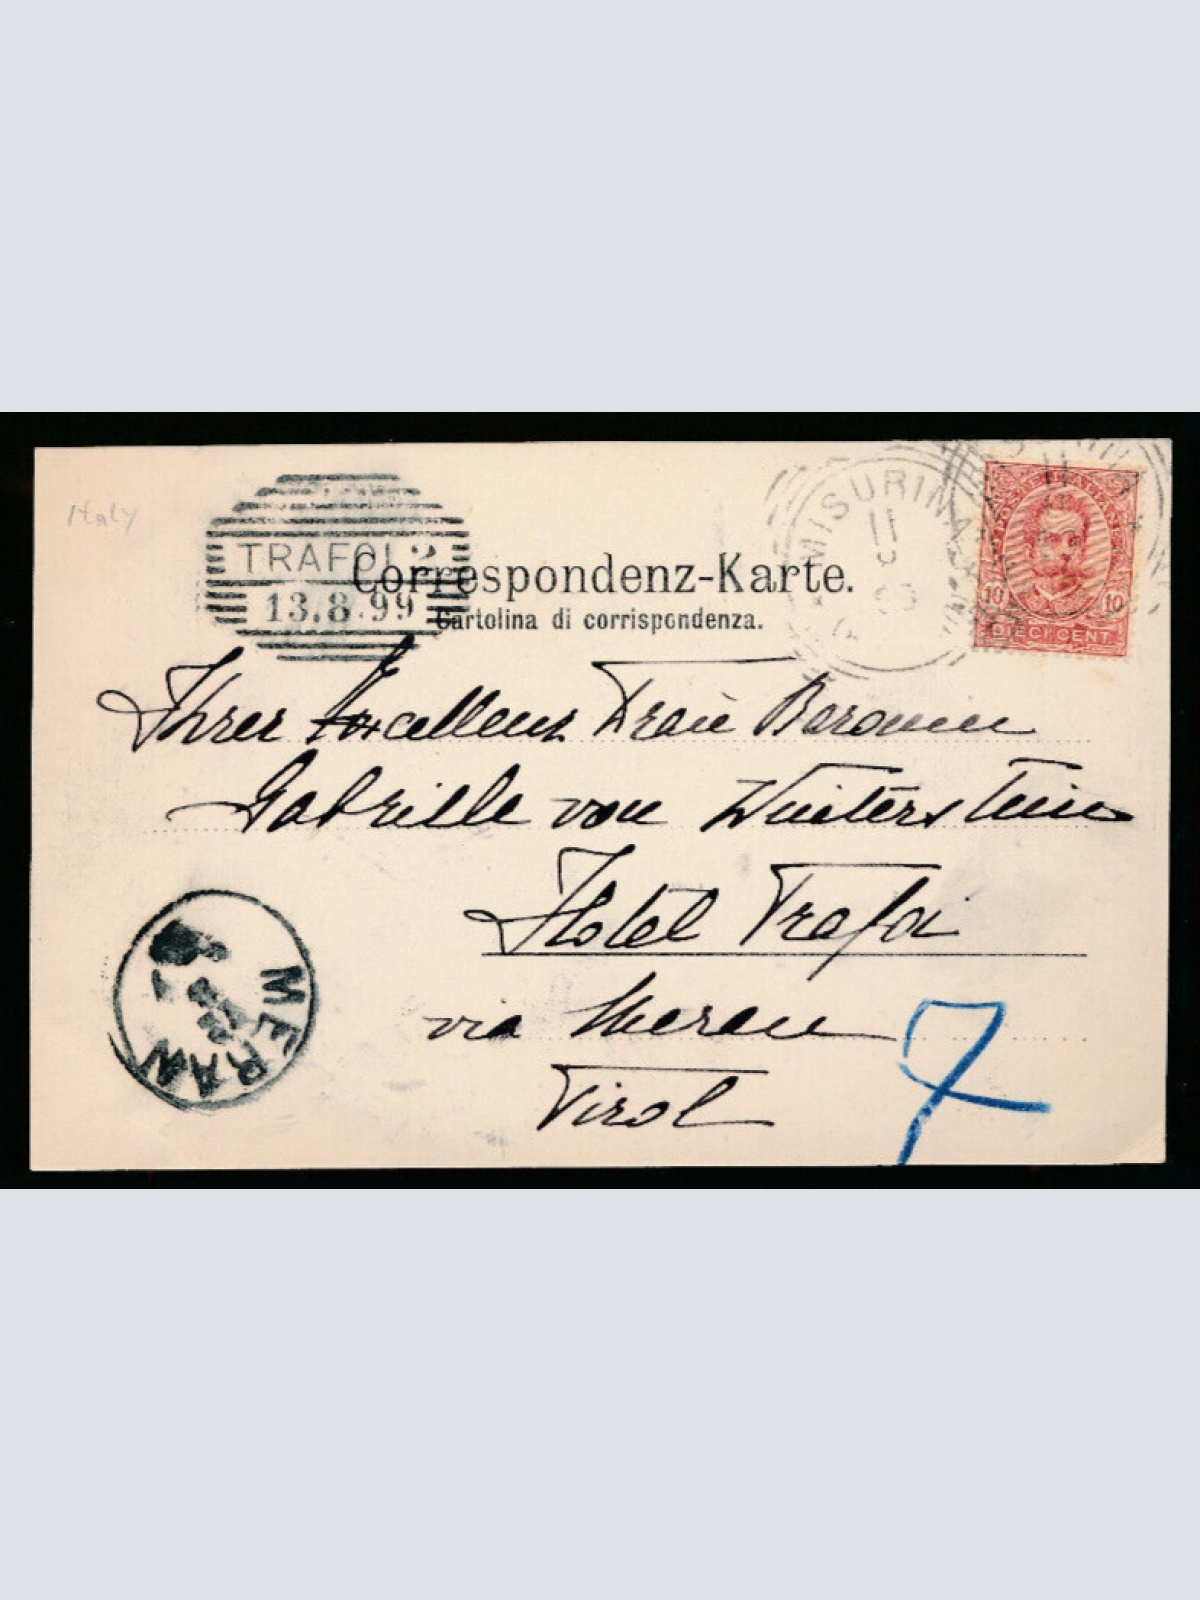 Italy
TRAFOI 2
13.8.99
MISURINA
11
Correspondenz-Karte.
Cartolina di corrispondenza.
10 10
DIECI CENT
Ihrer Excellenz Frau Baronin
Gabrielle von Winterstein
Hotel Trafoi
via Meran
Tirol
7
MERAN